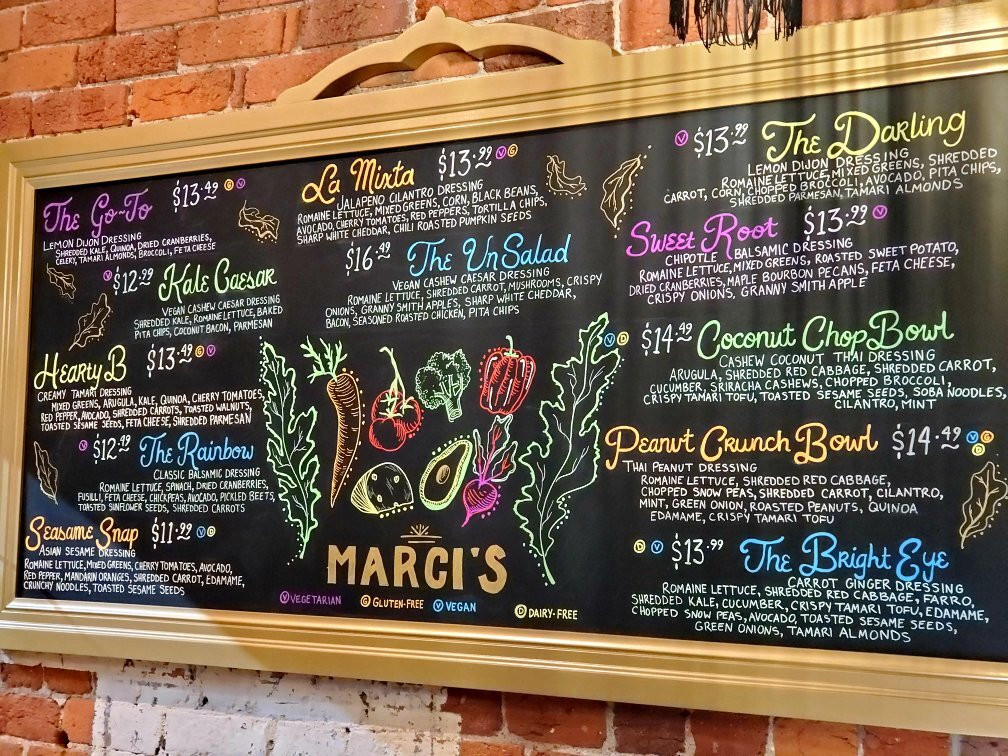 The Go-To $13.49 G V
LEMON DIJON DRESSING
SHREDDED KALE, QUINOA, DRIED CRANBERRIES,
CELERY, TAMARI ALMONDS, BROCCOLI, FETA CHEESE
V $12.99 Kale Caesar
VEGAN CASHEW CAESAR DRESSING
SHREDDED KALE, ROMAINE LETTUCE, BAKED
PITA CHIPS, COCONUT BACON, PARMESAN
Hearty B $13.49 G V
CREAMY TAMARI DRESSING
MIXED GREENS, ARUGULA, KALE, QUINOA, CHERRY TOMATOES,
RED PEPPER, AVOCADO, SHREDDED CARROTS, TOASTED WALNUTS,
TOASTED SESAME SEEDS, FETA CHEESE, SHREDDED PARMESAN
V $12.49 The Rainbow
CLASSIC BALSAMIC DRESSING
ROMAINE LETTUCE, SPINACH, DRIED CRANBERRIES,
FUSILLI, FETA CHEESE, CHICKPEAS, AVOCADO, PICKLED BEETS,
TOASTED SUNFLOWER SEEDS, SHREDDED CARROTS
Seasame Snap $11.99 V D
ASIAN SESAME DRESSING
ROMAINE LETTUCE, MIXED GREENS, CHERRY TOMATOES, AVOCADO,
RED PEPPER, MANDARIN ORANGES, SHREDDED CARROT, EDAMAME,
CRUNCHY NOODLES, TOASTED SESAME SEEDS
La Mixta $13.99 V G
JALAPENO CILANTRO DRESSING
ROMAINE LETTUCE, MIXED GREENS, CORN, BLACK BEANS,
AVOCADO, CHERRY TOMATOES, RED PEPPERS, TORTILLA CHIPS,
SHARP WHITE CHEDDAR, CHILI ROASTED PUMPKIN SEEDS
$16.49 The UnSalad
VEGAN CASHEW CAESAR DRESSING
ROMAINE LETTUCE, SHREDDED CARROT, MUSHROOMS, CRISPY
ONIONS, GRANNY SMITH APPLES, SHARP WHITE CHEDDAR,
BACON, SEASONED ROASTED CHICKEN, PITA CHIPS
MARCI'S
V VEGETARIAN G GLUTEN-FREE V VEGAN D DAIRY-FREE
V $13.99 The Darling
LEMON DIJON DRESSING
ROMAINE LETTUCE, MIXED GREENS, SHREDDED
CARROT, CORN, CHOPPED BROCCOLI, AVOCADO, PITA CHIPS,
SHREDDED PARMESAN, TAMARI ALMONDS
Sweet Root $13.99 V
CHIPOTLE BALSAMIC DRESSING
ROMAINE LETTUCE, MIXED GREENS, ROASTED SWEET POTATO,
DRIED CRANBERRIES, MAPLE BOURBON PECANS, FETA CHEESE,
CRISPY ONIONS, GRANNY SMITH APPLE
V D $14.49 Coconut Chop Bowl
CASHEW COCONUT THAI DRESSING
ARUGULA, SHREDDED RED CABBAGE, SHREDDED CARROT,
CUCUMBER, SRIRACHA CASHEWS, CHOPPED BROCCOLI,
CRISPY TAMARI TOFU, TOASTED SESAME SEEDS, SOBA NOODLES,
CILANTRO, MINT
Peanut Crunch Bowl $14.49 V G D
THAI PEANUT DRESSING
ROMAINE LETTUCE, SHREDDED RED CABBAGE,
CHOPPED SNOW PEAS, SHREDDED CARROT, CILANTRO,
MINT, GREEN ONION, ROASTED PEANUTS, QUINOA
EDAMAME, CRISPY TAMARI TOFU
D V $13.99 The Bright Eye
CARROT GINGER DRESSING
ROMAINE LETTUCE, SHREDDED RED CABBAGE, FARRO,
SHREDDED KALE, CUCUMBER, CRISPY TAMARI TOFU, EDAMAME,
CHOPPED SNOW PEAS, AVOCADO, TOASTED SESAME SEEDS,
GREEN ONIONS, TAMARI ALMONDS